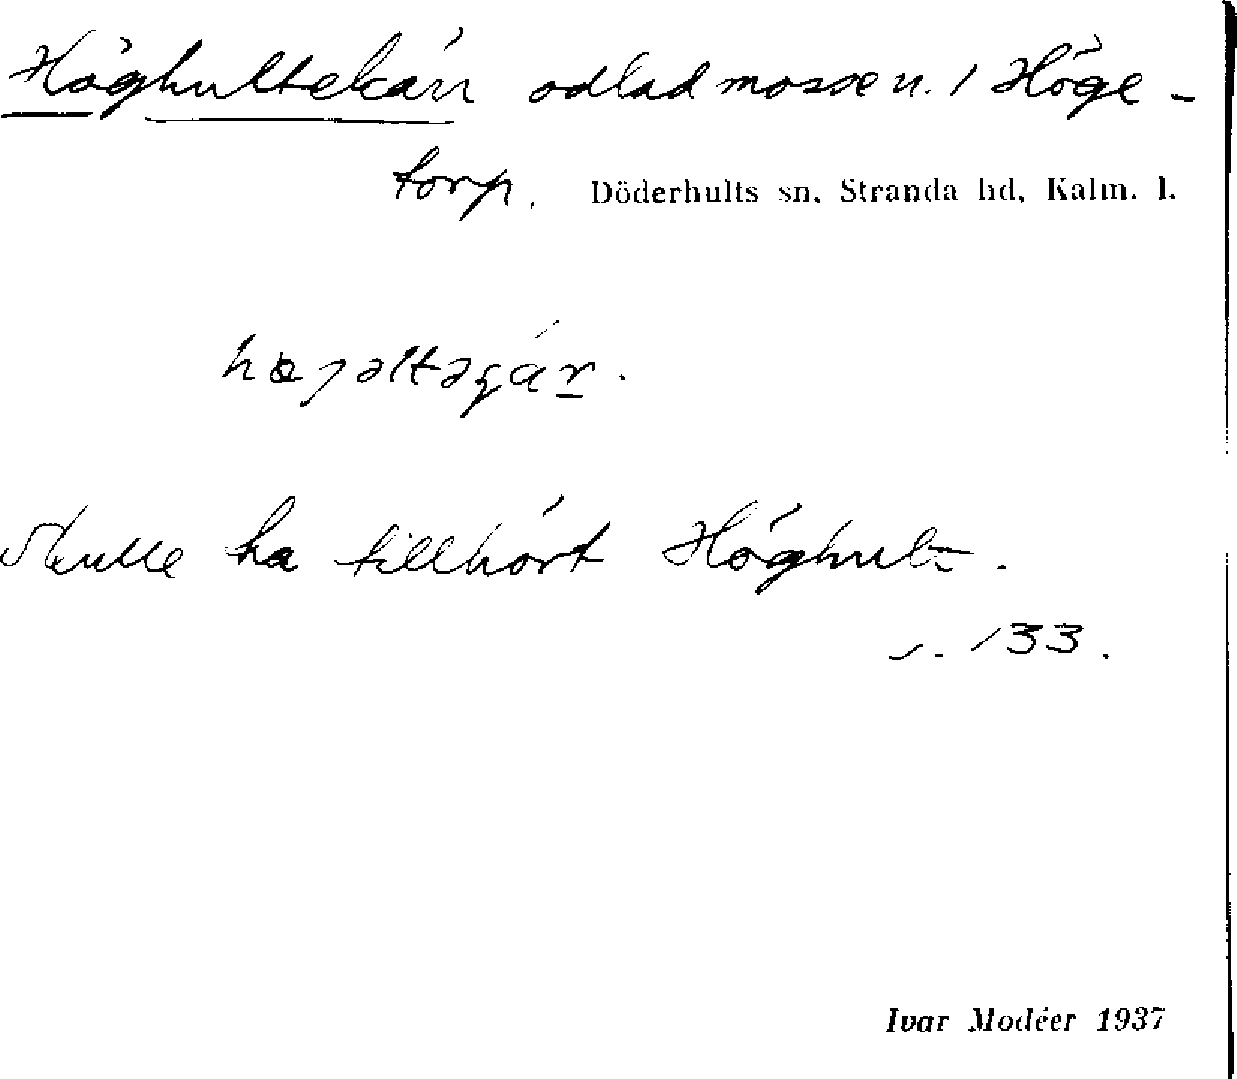 Höghultekärr odlad mosse n. i Höge-
torp. Döderhults sn, Stranda hd, Kalm. l.
Skulle ha tillhört Höghult.
s. 133.
Ivar Modéer 1937